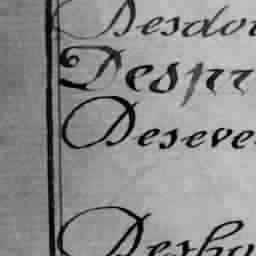 Desdo
Despr
Deseve
Desho